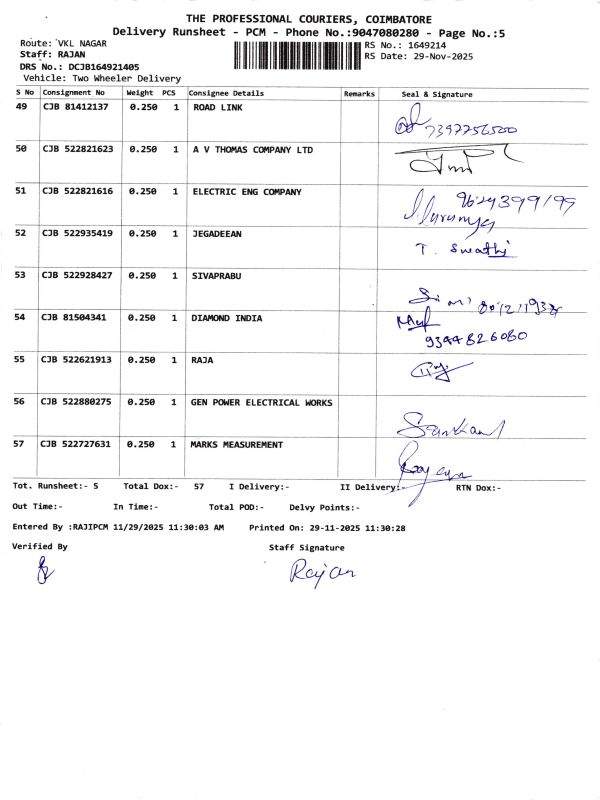 THE PROFESSIONAL COURIERS, COIMBATORE
Delivery Runsheet - PCM - Phone No.:9047080280 - Page No.:5
Route: VKL NAGAR
RS No.: 1649214
Staff: RAJAN
RS Date: 29-Nov-2025
DRS No.: DCJB164921405
Vehicle: Two Wheeler Delivery
S No Consignment No Weight PCS Consignee Details Remarks Seal & Signature
49 CJB 81412137 0.250 1 ROAD LINK
7397756500
50 CJB 522821623 0.250 1 A V THOMAS COMPANY LTD
51 CJB 522821616 0.250 1 ELECTRIC ENG COMPANY
52 CJB 522935419 0.250 1 JEGADEEAN
T. Swathi
53 CJB 522928427 0.250 1 SIVAPRABU
54 CJB 81504341 0.250 1 DIAMOND INDIA
9344826080
55 CJB 522621913 0.250 1 RAJA
56 CJB 522880275 0.250 1 GEN POWER ELECTRICAL WORKS
57 CJB 522727631 0.250 1 MARKS MEASUREMENT
Tot. Runsheet:- 5 Total Dox:- 57 I Delivery:- II Delivery:- RTN Dox:-
Out Time:- In Time:- Total POD:- Delvy Points:-
Entered By :RAJIPCM 11/29/2025 11:30:03 AM Printed On: 29-11-2025 11:30:28
Verified By Staff Signature
Rajan